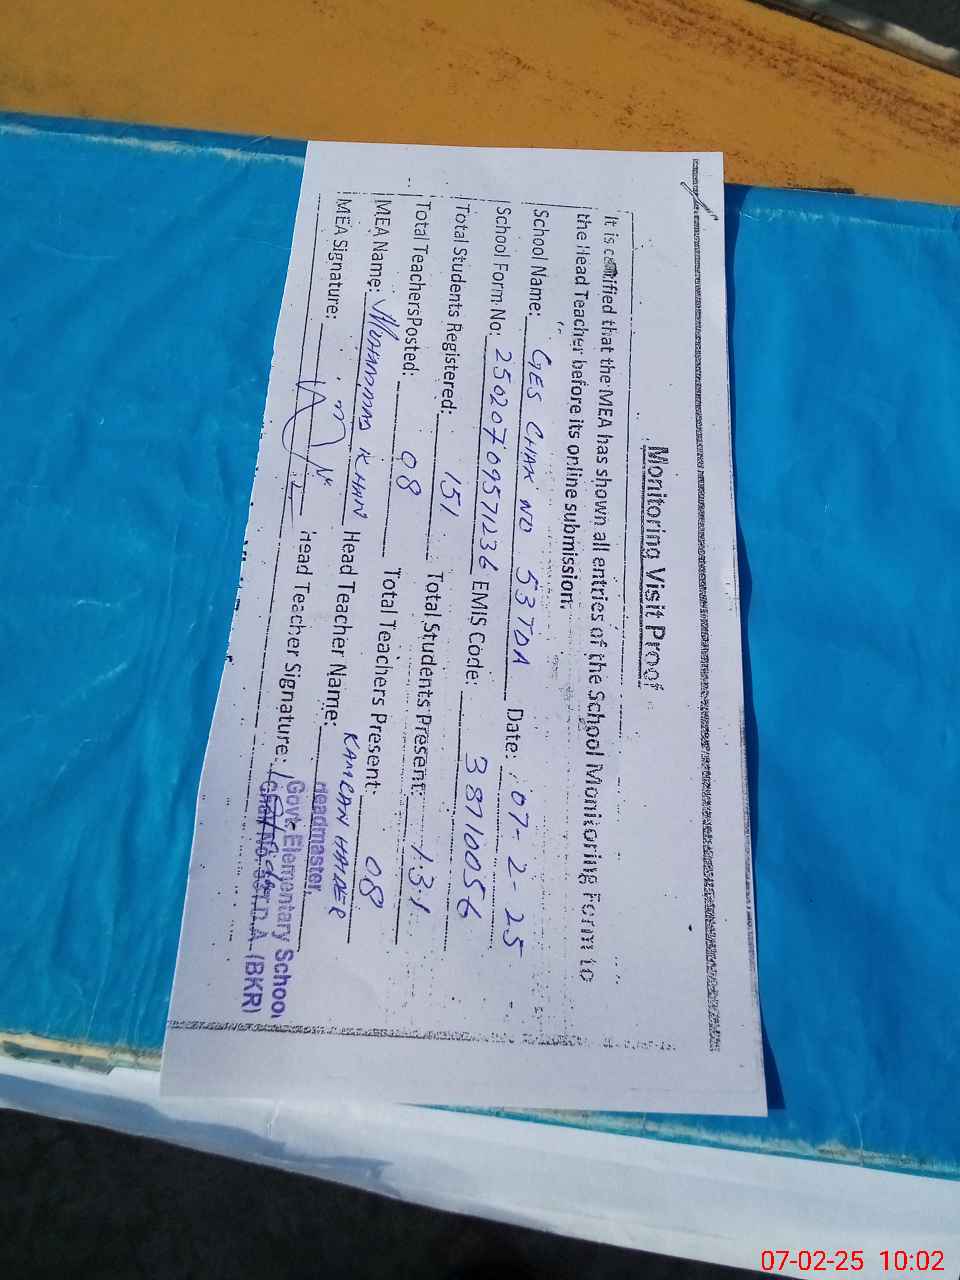 Monitoring Visit Proof
It is certified that the MEA has shown all entries of the School Monitoring Form to
the Head Teacher before its online submission.
School Name: GES CHAK NO 53TDA Date: 07-2-25
School Form No: EMIS Code: 38710056
Total Students Registered: 151 Total Students Present: 131
Total TeachersPosted: 08 Total Teachers Present: 08
MEA Name: MUHAMMAD KHAN Head Teacher Name: KAMRAN HAIDER
MEA Signature: Head Teacher Signature:
Headmaster
Govt: Elementary School
Chak No. T.D.A (BKR)
07-02-25 10:02